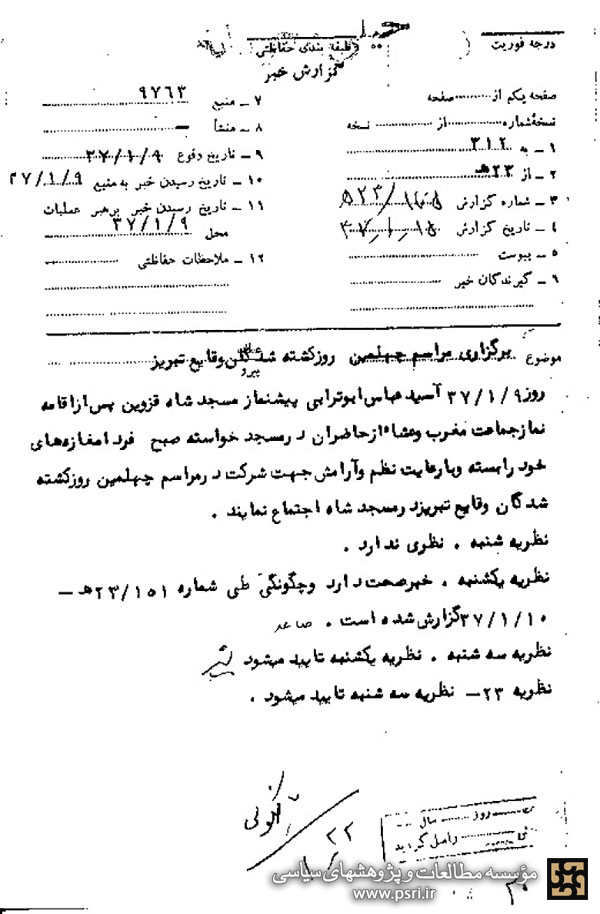 درجه فوریت
طبقه بندی حفاظتی
گزارش خبر
صفحه یکم از صفحه
نسخه شماره از نسخه
۱ – به ۳۱۲
۲ – از ۲۳هـ
۳ – شماره گزارش
۴ – تاریخ گزارش
۵ – پیوست
۶ – گیرندگان خبر
۷ – منبع ۹۷۶۳
۸ – منشأ –
۹ – تاریخ وقوع ۳۷/۱/۹
۱۰ – تاریخ رسیدن خبر به منبع ۳۷/۱/۹
۱۱ – تاریخ رسیدن خبر برهبر عملیات
محل ۳۷/۱/۹
۱۲ – ملاحظات حفاظتی
موضوع برگزاری مراسم چهلمین روزکشته شدگان وقایع تبریز
پیرو
روز ۳۷/۱/۹ آسیدعباس ابوترابی پیشنماز مسجد شاه قزوین پس ازاقامه
نمازجماعت مغرب وعشاء ازحاضران درمسجد خواسته صبح فردا مغازه‌های
خود رابسته وبارعایت نظم وآرامش جهت شرکت درمراسم چهلمین روزکشته
شدگان وقایع تبریزدرمسجد شاه اجتماع نمایند .
نظریه شنبه . نظری ندارد .
نظریه یکشنبه . خبرصحت دارد وچگونگی طی شماره ۲۳/۱۵۱هـ –
۳۷/۱/۱۰گزارش شده است . صاعد
نظریه سه شنبه . نظریه یکشنبه تایید میشود
نظریه ۲۳– نظریه سه شنبه تایید میشود .
روز سال
مؤسسه مطالعات و پژوهشهای سیاسی
www.psri.ir